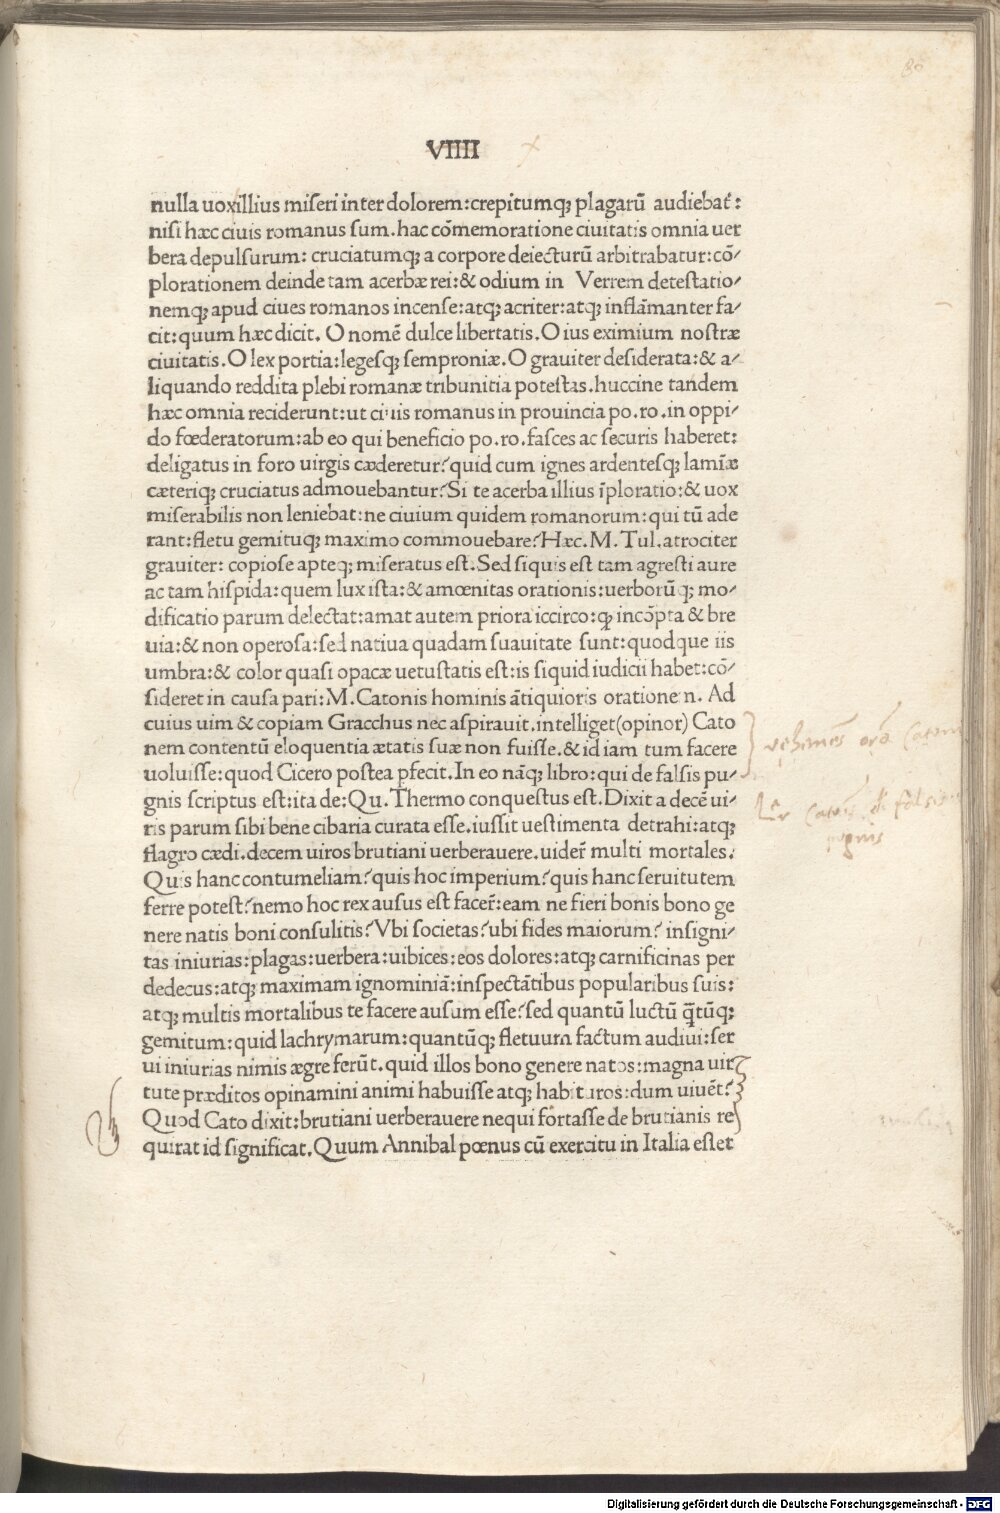 80
VIIII
nulla uox illius miseri inter dolorem:crepitumq; plagarū audiebat̄:
nisi hæc ciuis romanus sum.hac cōmemoratione ciuitatis omnia uer
bera depulsurum: cruciatumq; a corpore deiecturū arbitrabatur:cō/
plorationem deinde tam acerbæ rei:& odium in Verrem detestatio/
nemq; apud ciues romanos incense:atq; acriter:atq; inflāmanter fa/
cit:quum hæc dicit. O nomē dulce libertatis.O ius eximium nostræ
ciuitatis.O lex portia:legesq; semproniæ.O grauiter desiderata:& a/
liquando reddita plebi romanæ tribunitia potestas.huccine tandem
hæc omnia reciderunt:ut ciuis romanus in prouincia po.ro.in oppi/
do fœderatorum:ab eo qui beneficio po.ro.fasces ac securis haberet:
deligatus in foro uirgis cæderetur?quid cum ignes ardentesq; lamīæ
cæteriq; cruciatus admouebantur?Si te acerba illius īploratio:& uox
miserabilis non leniebat:ne ciuium quidem romanorum:qui tū ade
rant:fletu gemituq; maximo commouebare?Hæc.M.Tul.atrociter
grauiter: copiose apteq; miseratus est.Sed siquis est tam agresti aure
ac tam hispida:quem lux ista:& amœnitas orationis:uerborūq; mo/
dificatio parum delectat:amat autem priora iccirco:ꝙ incōpta & bre
uia:& non operosa:sed natiua quadam suauitate sunt:quodque iis
umbra:& color quasi opacæ uetustatis est:is siquid iudicii habet:cō/
sideret in causa pari:M.Catonis hominis ātiquioris orationem. Ad
cuius uim & copiam Gracchus nec aspirauit.intelliget(opinor) Cato
nem contentū eloquentia ætatis suæ non fuisse.& id iam tum facere
uoluisse:quod Cicero postea pfecit.In eo nāq; libro:qui de falsis pu/
gnis scriptus est:ita de:Qu.Thermo conquestus est.Dixit a decē ui/
ris parum sibi bene cibaria curata esse.iussit uestimenta detrahi:atq;
flagro cædi.decem uiros brutiani uerberauere.uider̄ multi mortales.
Quis hanc contumeliam?quis hoc imperium?quis hanc seruitutem
ferre potest?nemo hoc rex ausus est facer̄:eam ne fieri bonis bono ge
nere natis boni consulitis?Vbi societas?ubi fides maiorum? insigni/
tas iniurias:plagas:uerbera:uibices:eos dolores:atq; carnificinas per
dedecus:atq; maximam ignominiā:inspectātibus popularibus suis:
atq; multis mortalibus te facere ausum esse?sed quantū luctū q̄tūq;
gemitum:quid lachrymarum:quantūq; fletuum factum audiui:ser
ui iniurias nimis ægre ferūt.quid illos bono genere natos:magna uir
tute præditos opinamini animi habuisse atq; habituros:dum uiuēt?
Quod Cato dixit:brutiani uerberauere nequi fortasse de brutianis re
quirat id significat.Quum Annibal pœnus cū exercitu in Italia esset
Digitalisierung gefördert durch die Deutsche Forschungsgemeinschaft - DFG